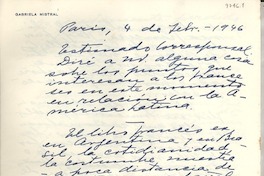 GABRIELA MISTRAL
París, 4 de Febr. - 1946
Estimado corresponsal
Diré a Ud. alguna cosa
sobre los puntos que
interesan a los france
ses en este momento
en relación con la A-
mérica Latina.
Al libro francés es
en Argentina y en Bra-
sil, la cotidianidad,
la costumbre muestra
a poca distancia de